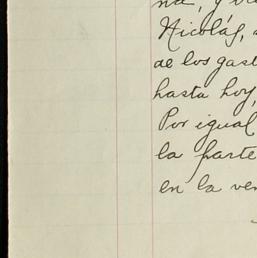 na, y
Nicolás,
de los gast
hasta hoy,
Por igual
la parte
en la ven